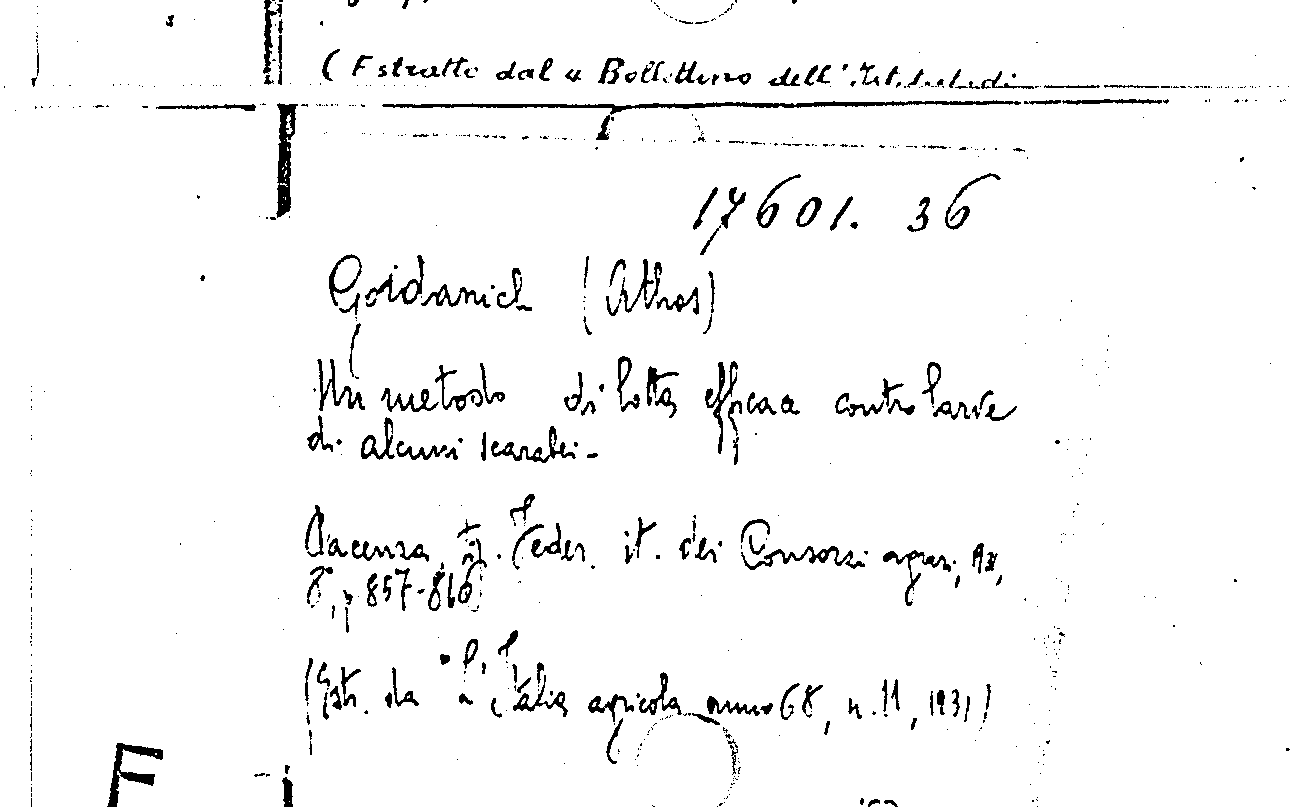 ( Estratto dal « Bollettino dell' Istituto di
17601. 36
Goidanich (Athos)
Un metodo di lotta efficace contro larve
di alcuni scarabei -
Piacenza, tip. Feder. it. dei Consorzi agrari,
8°, p 857-816
(Estr. da "L'Italia agricola anno 68, n. 11, 1931)
F